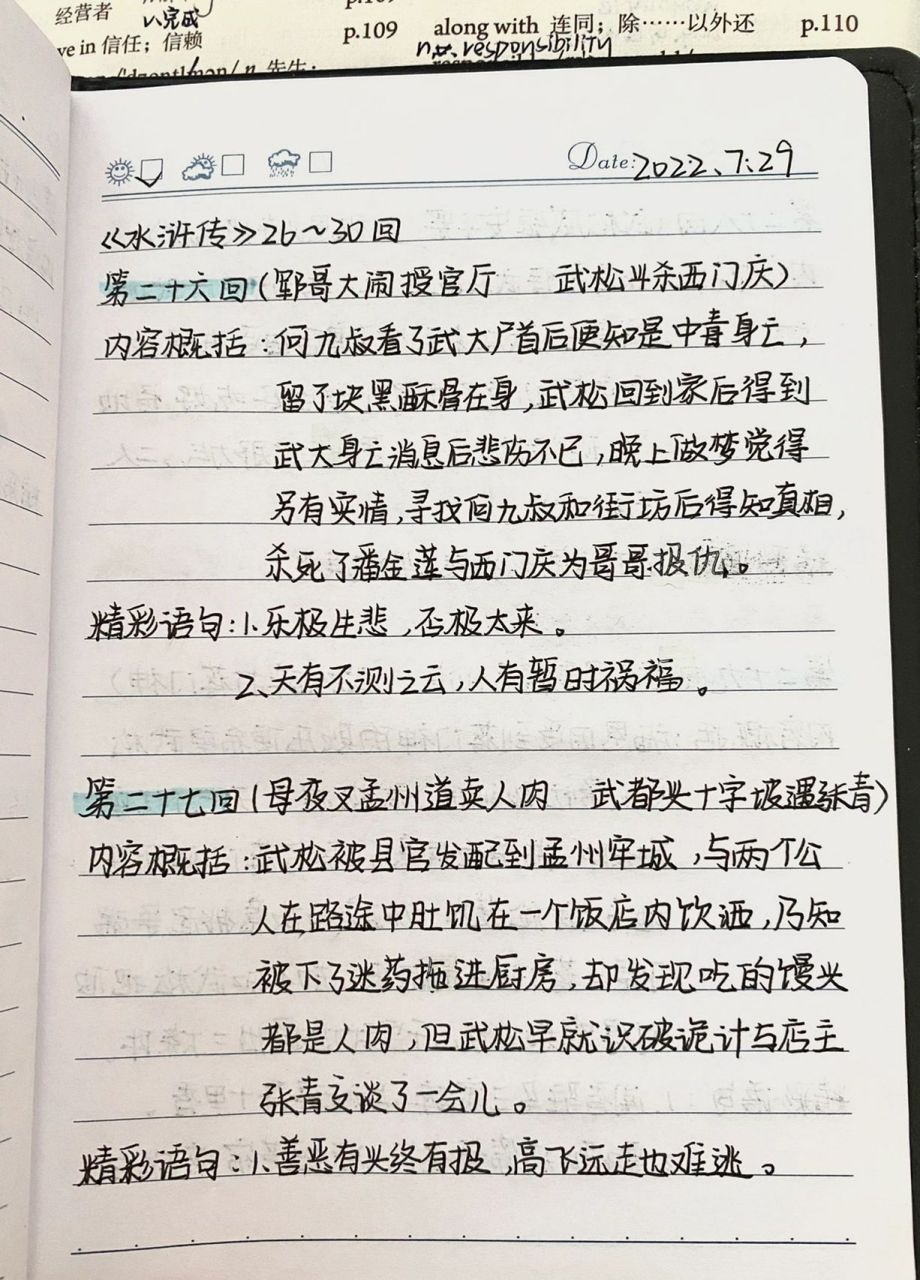 经营者
v.完成
p.109
ve in 信任；信赖
along with 连同；除……以外还 p.110
n.责 responsibility
n. 先生；
Date: 2022.7.29
《水浒传》26~30回
第二十六回（郓哥大闹授官厅 武松斗杀西门庆）
内容概括：何九叔看了武大尸首后便知是中毒身亡，
留了块黑酥骨在身，武松回到家后得到
武大身亡消息后悲伤不已，晚上做梦觉得
另有实情，寻找何九叔和街坊后得知真相，
杀死了潘金莲与西门庆为哥哥报仇。
精彩语句：1.乐极生悲，否极太来。
2.天有不测之云，人有暂时祸福。
第二十七回（母夜叉孟州道卖人肉 武都头十字坡遇张青）
内容概括：武松被县官发配到孟州牢城，与两个公
人在路途中肚饥在一个饭店内饮酒，乃知
被下了迷药拖进厨房，却发现吃的馒头
都是人肉，但武松早就识破诡计与店主
张青交谈了一会儿。
精彩语句：1.善恶有头终有报，高飞远走也难逃。